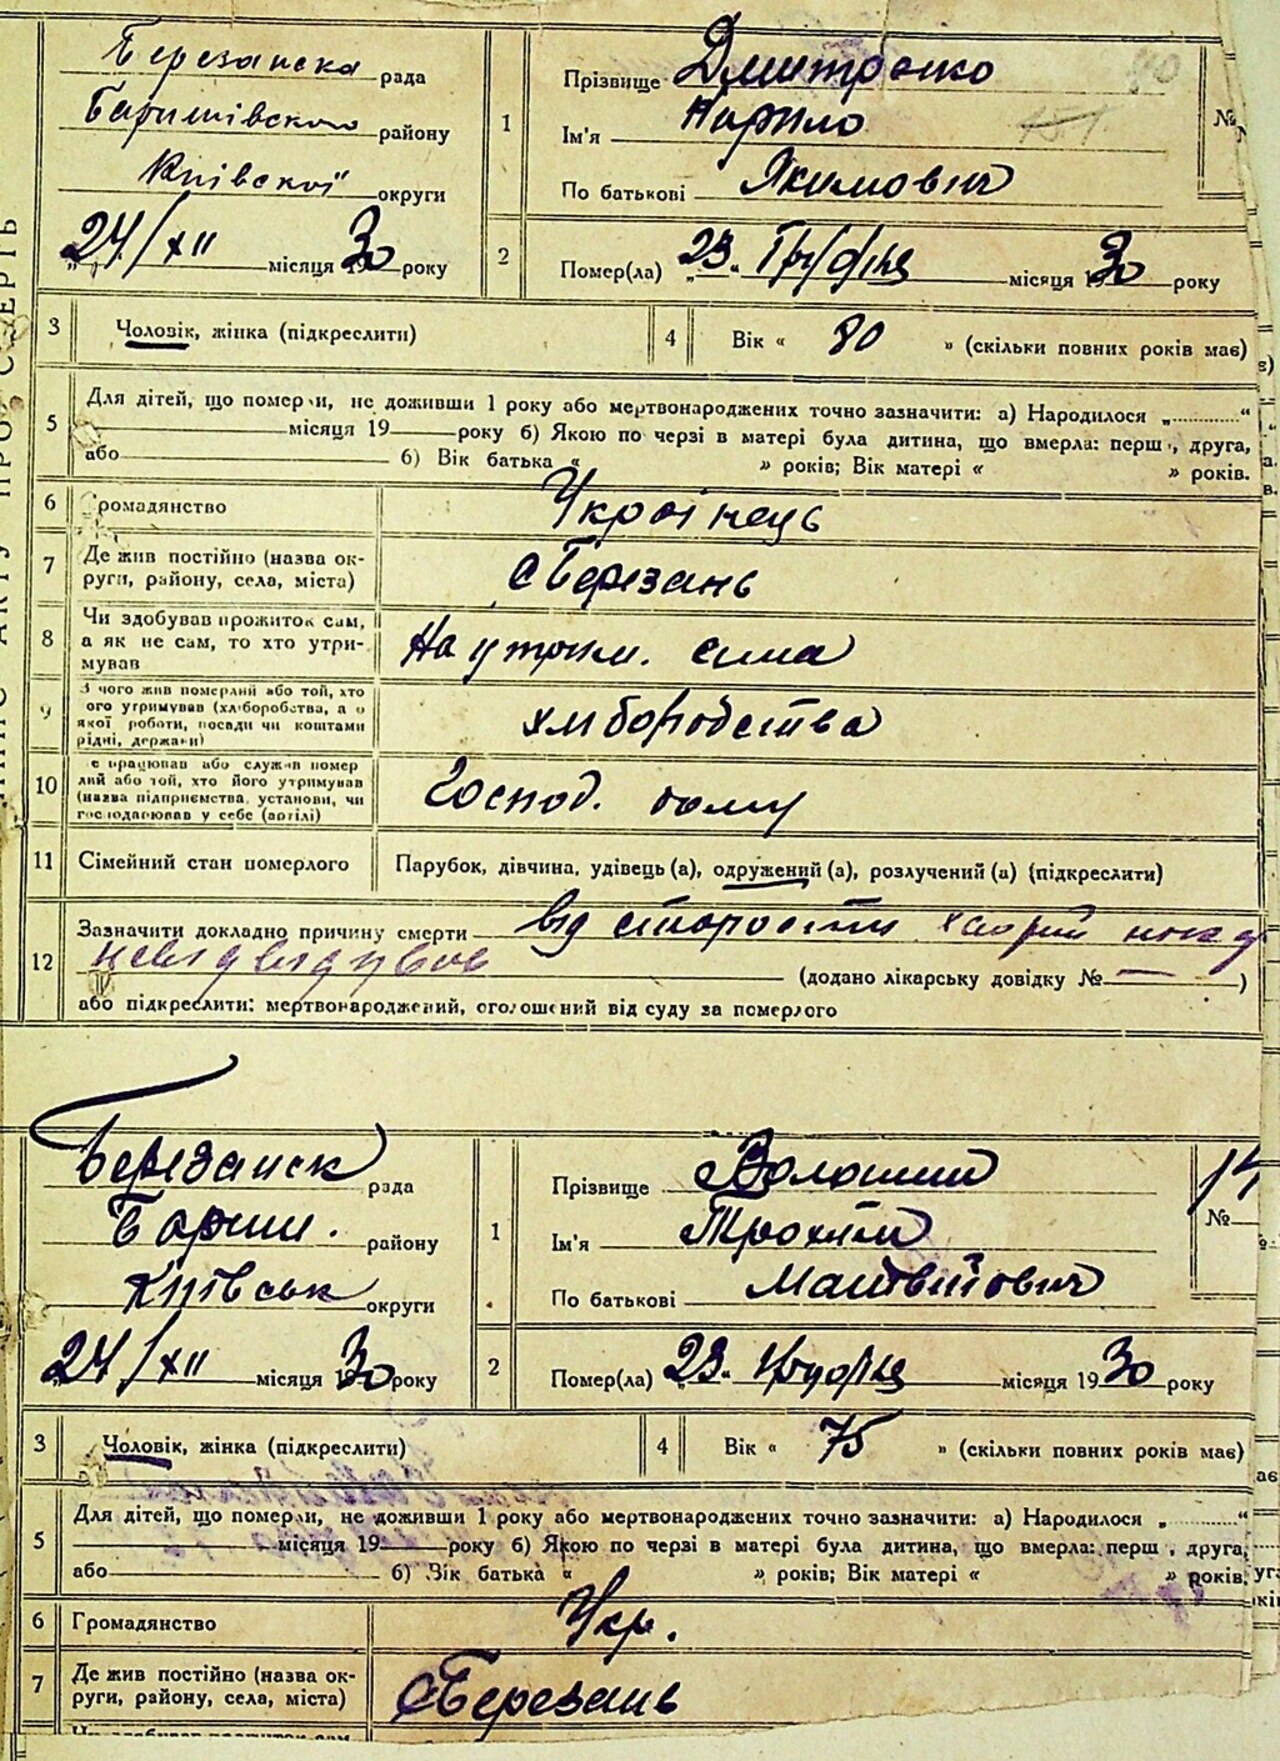 Березанска рада
Баришівського району
Київської округи
24/XII місяця 1930 року
1
Прізвище Дмитренко
Ім'я Кирило
По батькові Якимович
№
2
Помер(ла) „23“ Грудня місяця 1930 року
3 Чоловік, жінка (підкреслити)
4 Вік « 80 » (скільки повних років має)
5 Для дітей, що померли, не доживши 1 року або мертвонароджених точно зазначити: а) Народилося „..........“
місяця 19 року б) Якою по черзі в матері була дитина, що вмерла: перш , друга,
або б) Вік батька « » років; Вік матері « » років.
6 Громадянство Українець
7 Де жив постійно (назва ок-
руги, району, села, міста) с Березань
8 Чи здобував прожиток сам,
а як не сам, то хто утри-
мував На утрим. сина
9 З чого жив померлий або той, хто
ого утримував (хліборобства, а о
якої роботи, посади чи коштами
рідні, держави) хліборобства
10 е працював або служив помер
лий або той, хто його утримував
(назва підприємства, установи, чи
господарював у себе (артілі) Господ.
11 Сімейний стан померлого Парубок, дівчина, удівець (а), одружений (а), розлучений (а) (підкреслити)
12 Зазначити докладно причину смерти від старости
(додано лікарську довідку № — )
або підкреслити: мертвонароджений, оголошений від суду за померлого
Березанск рада
Бариш. району
Київськ округи
24/XII місяця 1930 року
1
Прізвище Волошин
Ім'я Трохим
По батькові Матвійович
№
2
Помер(ла) „23“ Грудня місяця 1930 року
3 Чоловік, жінка (підкреслити)
4 Вік « 75 » (скільки повних років має)
5 Для дітей, що померли, не доживши 1 року або мертвонароджених точно зазначити: а) Народилося „..........“
місяця 19 року б) Якою по черзі в матері була дитина, що вмерла: перш , друга,
або б) Вік батька « » років; Вік матері « » років.
6 Громадянство Укр.
7 Де жив постійно (назва ок-
руги, району, села, міста) с Березань